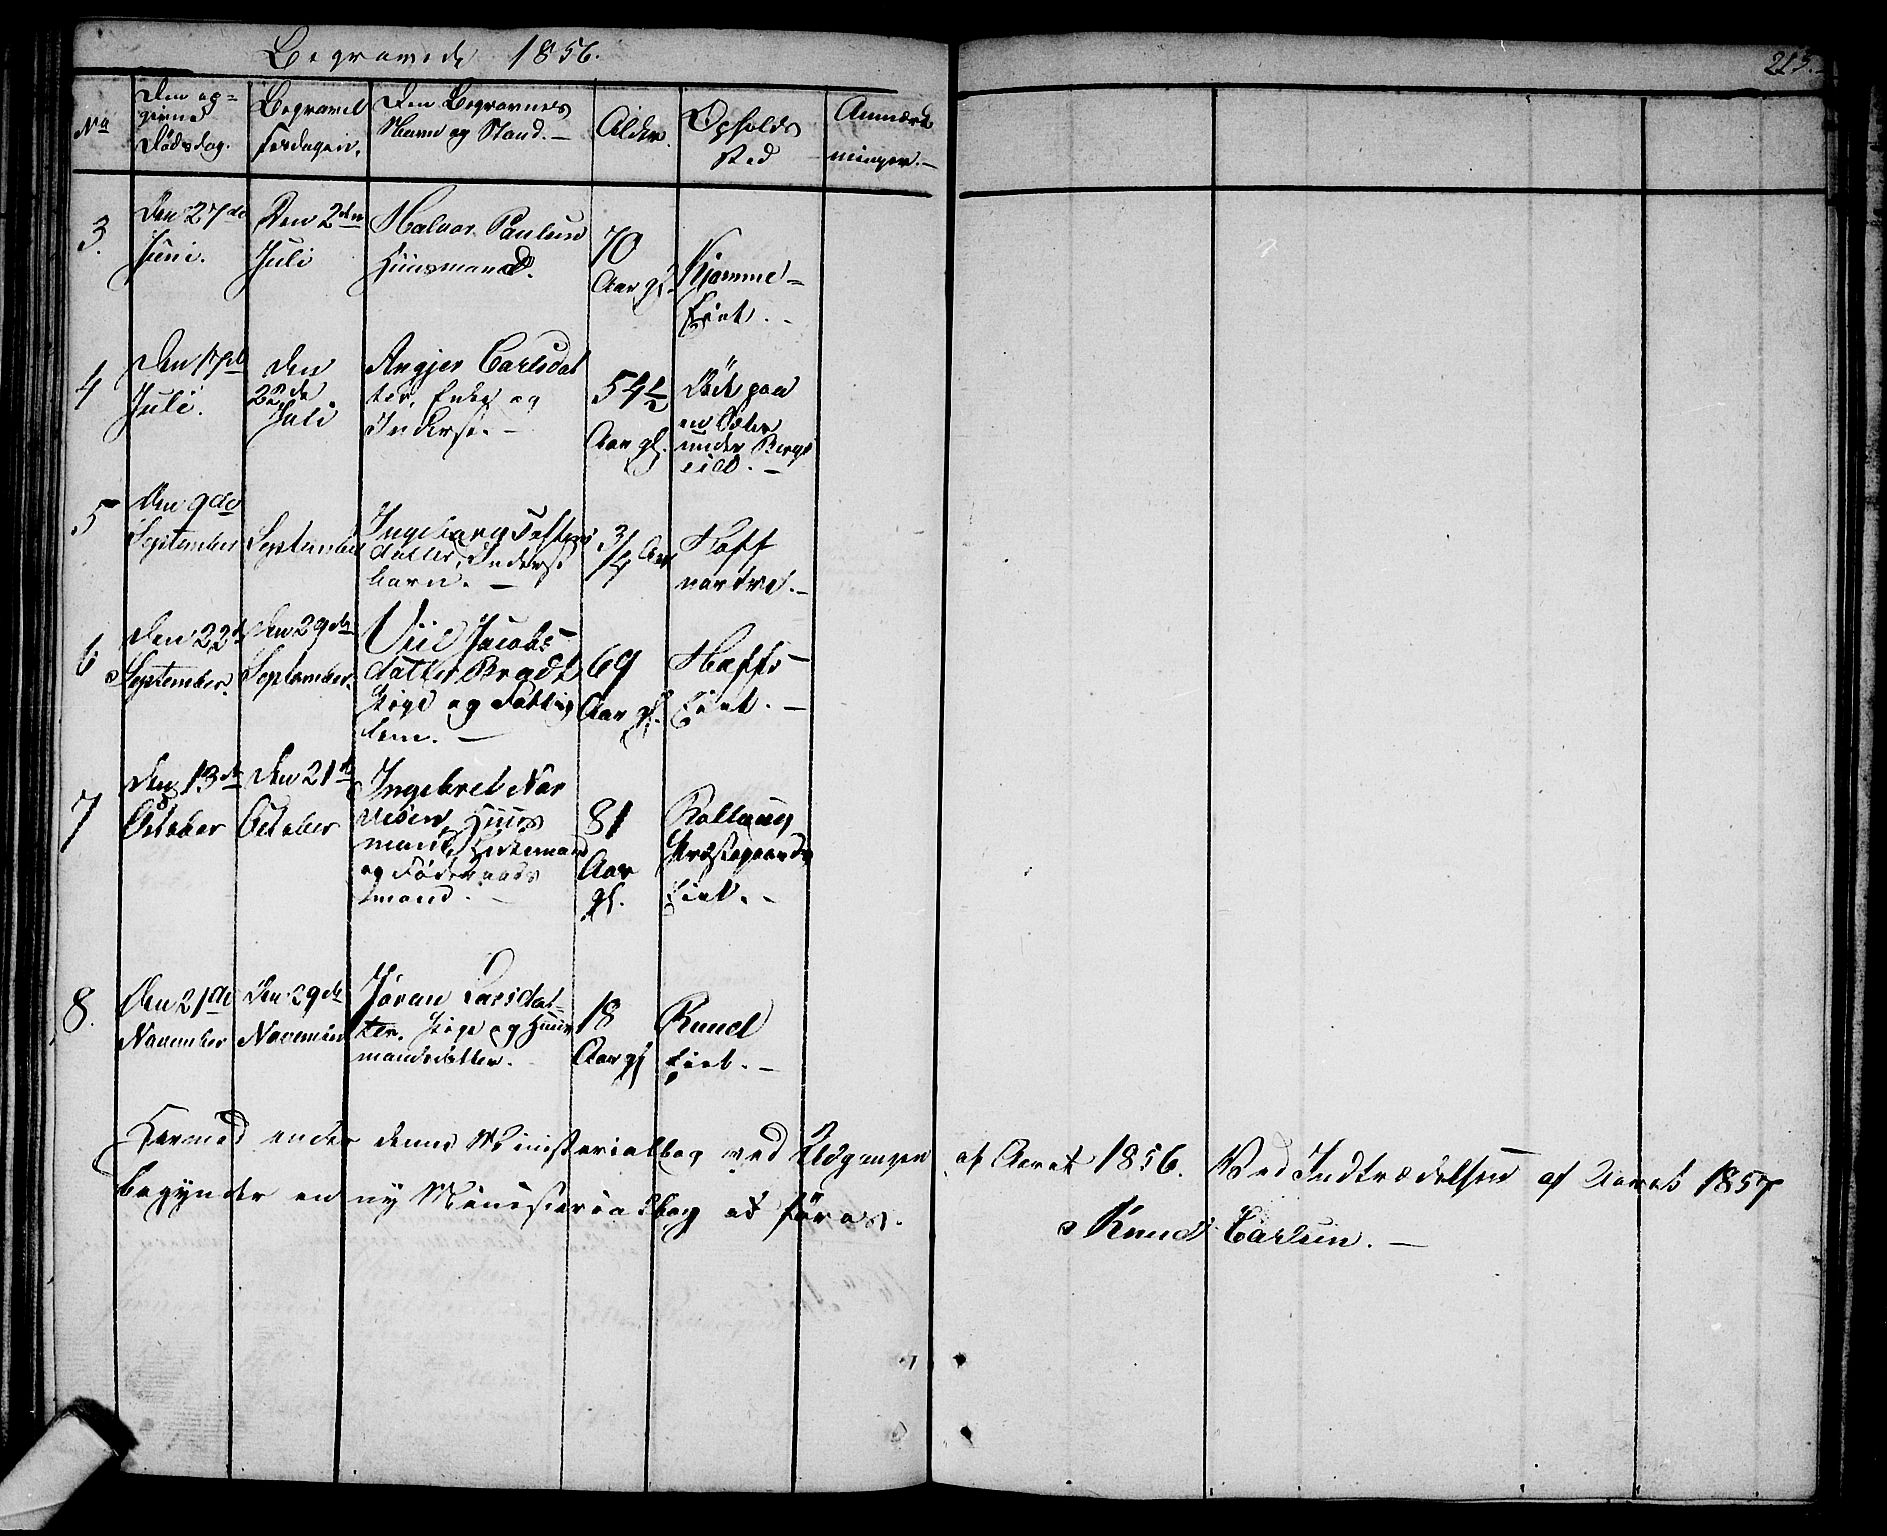 Begravede 1856.
213.
No
Den op=
givne
Dödsdag.
Begravel
sesdagen.
Den Begravnes
Navn og Stand. –
Alder.
Opholds
sted
Anmærk
ninger. –
3.
Den 27de
Juni.
Den 2den
Juli
Halvor Paulsen
Huusmand.
70
Aar gl.
Kjomme=
Eiet. –
4
Den 17de
Juli.
den
22de
Juli
Angjer Carlsdat
ter, Enke og
Inderst. –
54 1/2
Aar gl.
Död paa
en Sæter
under Bergs
eid. –
5
Den 9de
September
September
Ingeborg
datter, Inderst
barn. –
3/4 Aar
Hoff
nordre. –
6
Den 22de
September.
den 29de
September.
Siil Jacobs
datter Bradt
Pige og Fattig
lem. –
69
Aar gl.
Hoffs=
Eiet. –
7
den 13de
October
den 21de
October
Ingebret Nar
vesen, Huus
mand,
og Föderaads
mand. –
81
Aar
gl.
Rollaug
Præstegaards
Eiet. –
8.
Den 21de
November
Den 29de
November
Jöran Larsdat=
ter. Pige og Huus
mandsdatter.
18
Aar gl
Ruud
Eiet. –
Hermed ender denne Ministerialbog ved Udgangen af Aaret 1856. Ved Indtrædelsen af Aaret 1857
begynder en ny Ministerialbog at föres.
Knud Carlsen. –